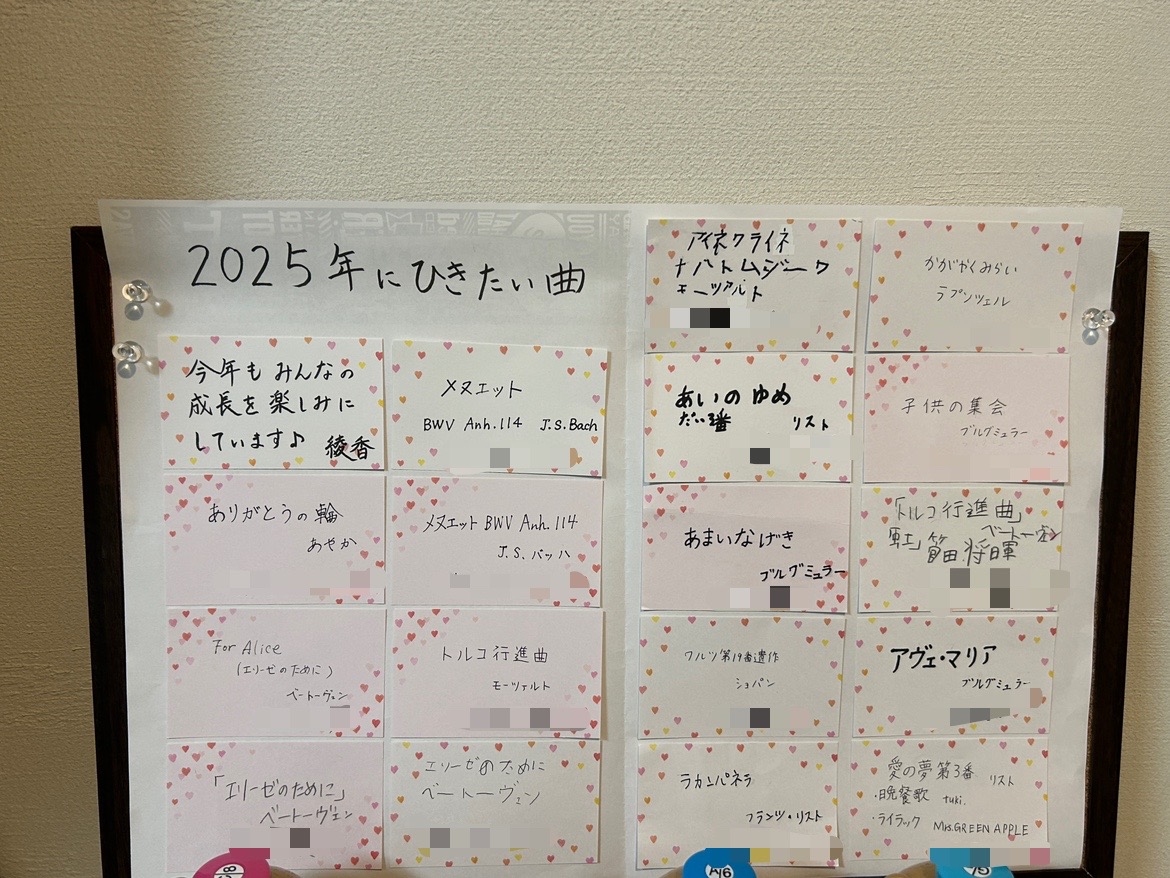 2025年にひきたい曲
今年もみんなの
成長を楽しみに
しています♪ 綾香
メヌエット
BWV Anh.114 J.S.Bach
ありがとうの輪
あやか
メヌエット BWV Anh.114
J.S.バッハ
For Alice
(エリーゼのために)
ベートーヴェン
トルコ行進曲
モーツァルト
「エリーゼのために」
ベートーヴェン
エリーゼのために
ベートーヴェン
アイネクライネ
ナハトムジーク
モーツァルト
かがやくみらい
ラプンツェル
あいのゆめ
だい3番 リスト
子供の集会
ブルグミュラー
あまいなげき
ブルグミュラー
「トルコ行進曲」
ベートーヴェン
「虹」菅田将暉
ワルツ第19番遺作
ショパン
アヴェ・マリア
ブルグミュラー
ラカンパネラ
フランツ・リスト
愛の夢第3番 リスト
・晩餐歌 tuki.
・ライラック Mrs.GREEN APPLE